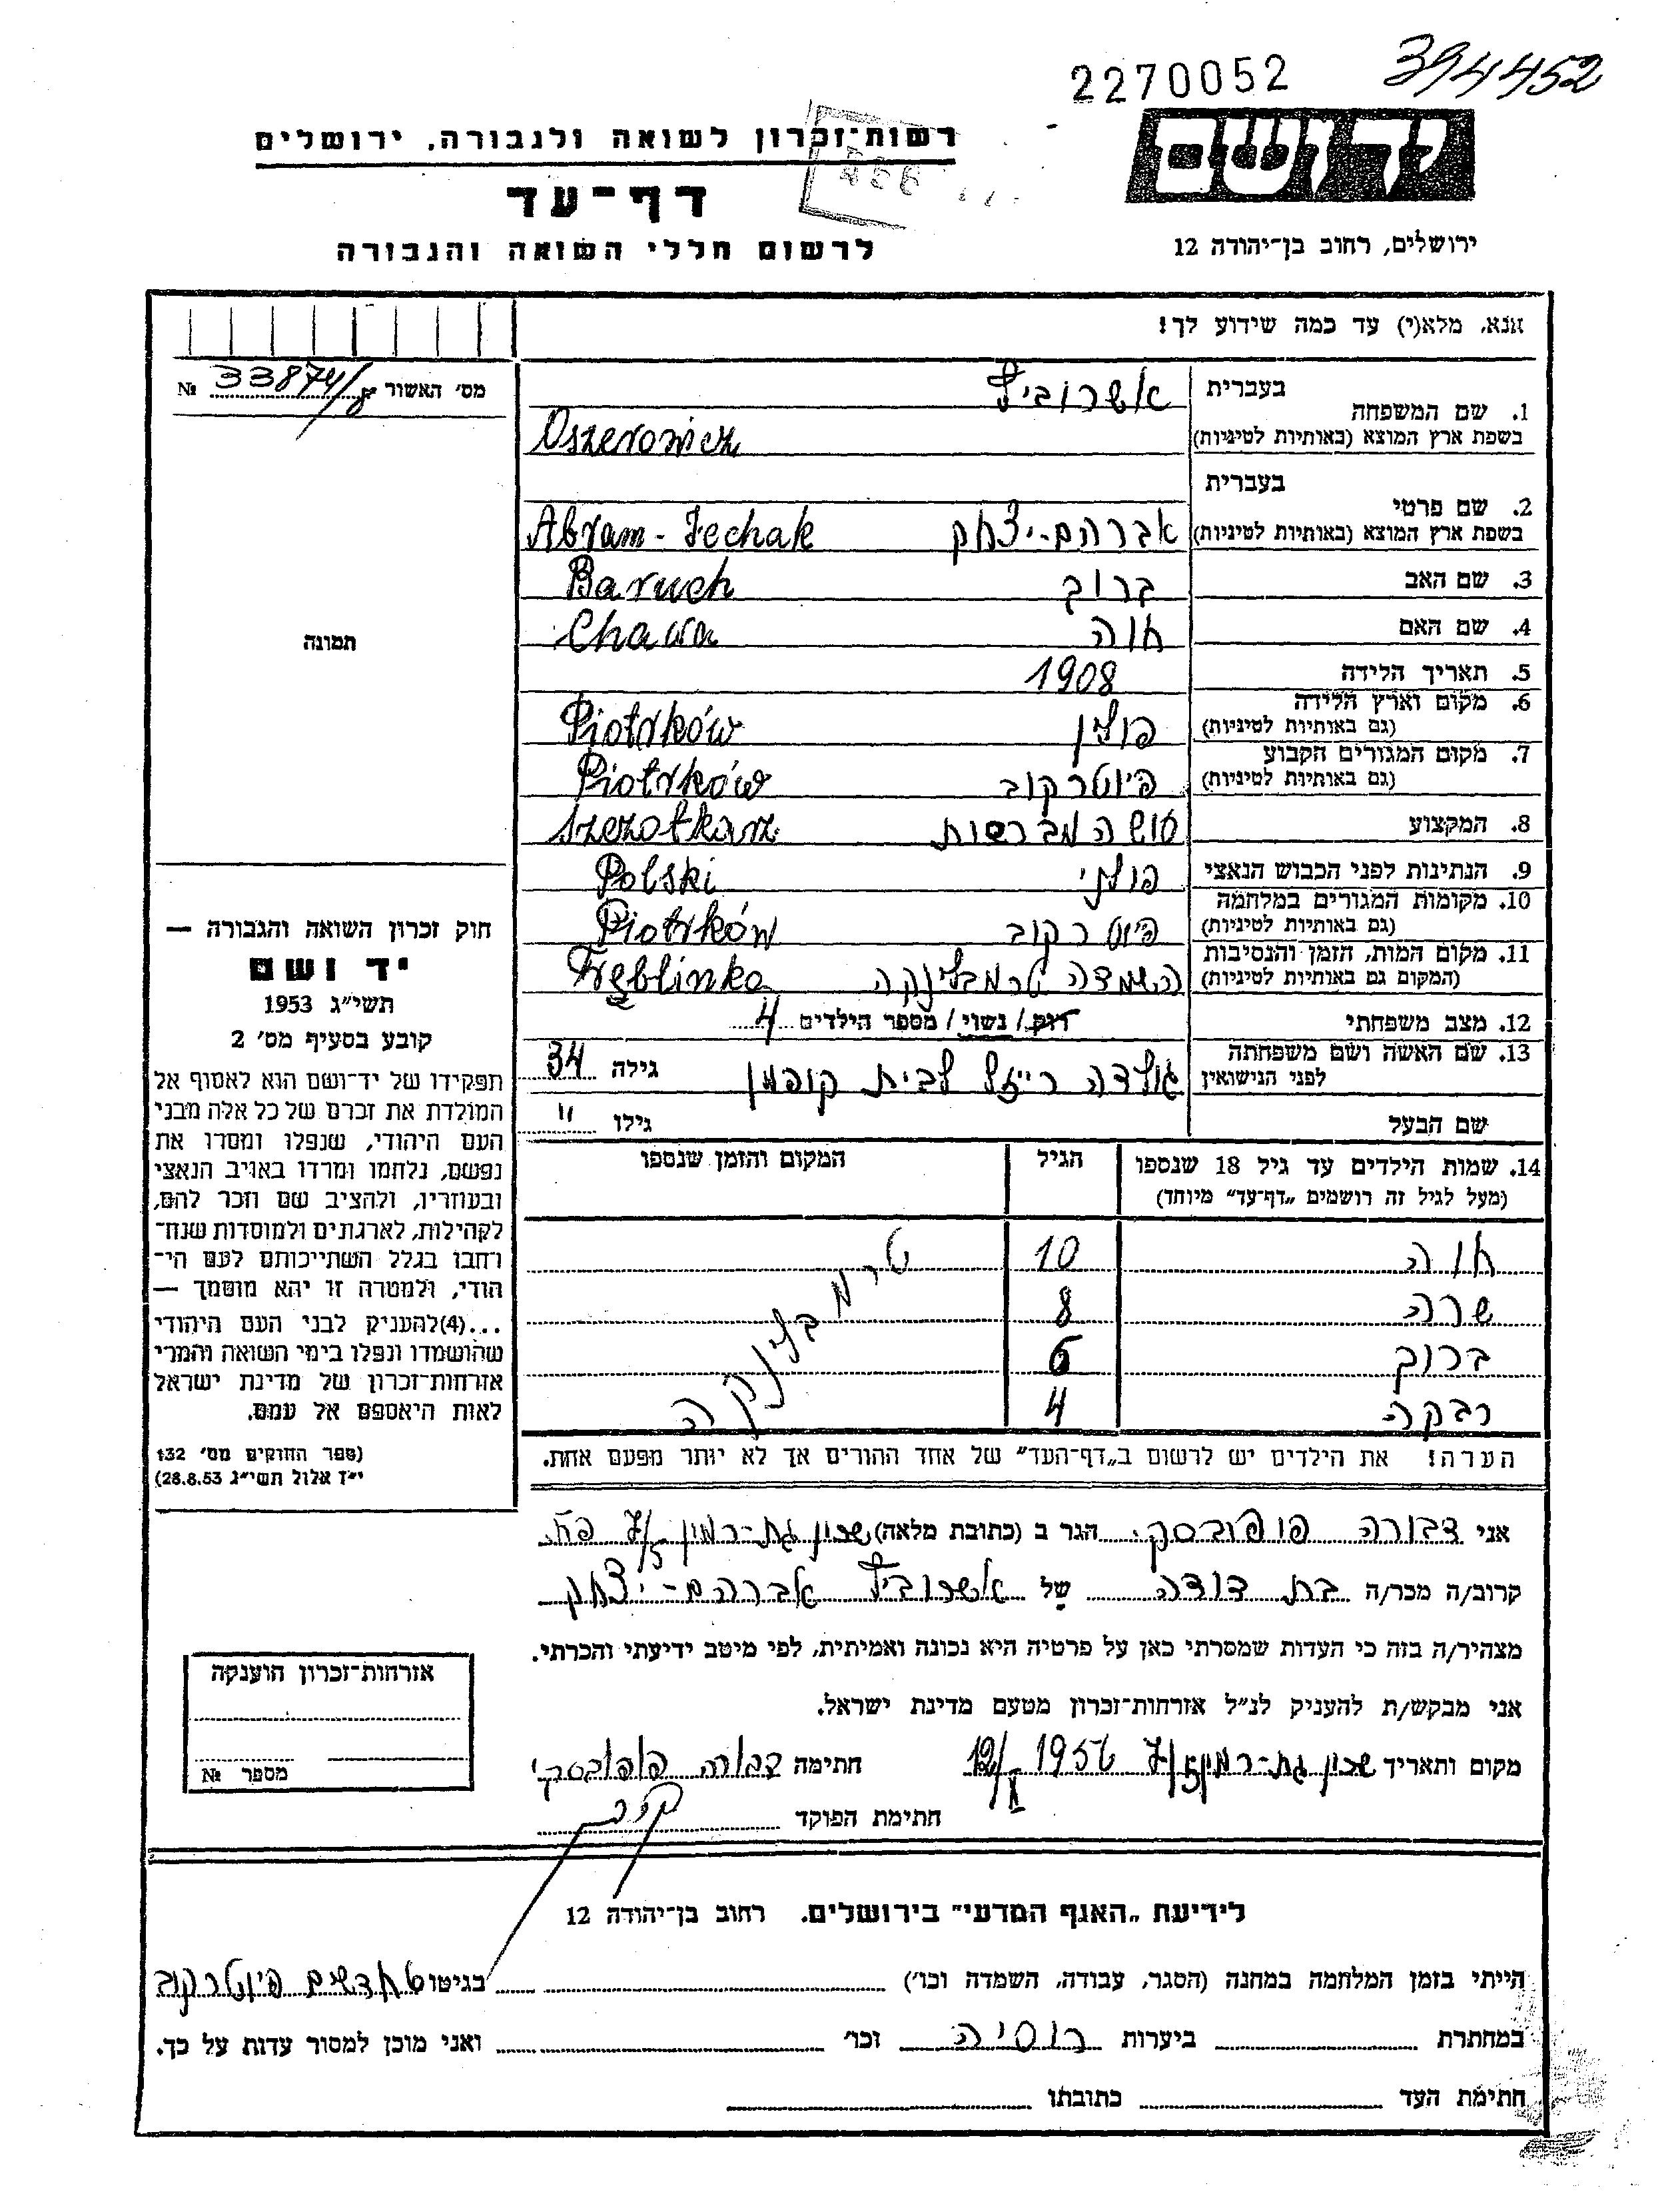 2270052 394452
יד ושם
רשות־זכרון לשואה ולגבורה, ירושלים
דף־עד
לרשום חללי השואה והגבורה
ירושלים, רחוב בן־יהודה 12
אנא, מלא(י) עד כמה שידוע לך!
מס׳ האשור № 33874/
1. שם המשפחה
בעברית אשרוביץ
בשפת ארץ המוצא (באותיות לטיניות) Oszerowicz
2. שם פרטי
בעברית
בשפת ארץ המוצא (באותיות לטיניות) אברהם-יצחק Abram-Jechak
3. שם האב ברוך Baruch
4. שם האם חוה Chawa
5. תאריך הלידה 1908
6. מקום וארץ הלידה
(גם באותיות לטיניות) פולין Piotrków
7. מקום המגורים הקבוע
(גם באותיות לטיניות) פיוטרקוב Piotrków
8. המקצוע עושה מברשות Szczotkarz
9. הנתינות לפני הכבוש הנאצי פולני Polski
10. מקומות המגורים במלחמה
(גם באותיות לטיניות) פיוטרקוב Piotrków
11. מקום המות, הזמן והנסיבות
(המקום גם באותיות לטיניות) השמדה טרמבלינקה Tręblinka
12. מצב משפחתי רוק / נשוי / מספר הילדים 4
13. שם האשה ושם משפחתה
לפני הנישואין גולדה רייזל לבית קופמן גילה 34
שם הבעל גילו "
14. שמות הילדים עד גיל 18 שנספו
(מעל לגיל זה רושמים „דף־עד״ מיוחד)
הגיל
המקום והזמן שנספו
חוה 10
שרה 8
ברוך 6
רבקה 4
טרמבלינקה
הערה! את הילדים יש לרשום ב„דף־העד״ של אחד ההורים אך לא יותר מפעם אחת.
תמונה
חוק זכרון השואה והגבורה —
יד ושם
תשי״ג 1953
קובע בסעיף מס׳ 2
תפקידו של יד־ושם הוא לאסוף אל
המולדת את זכרם של כל אלה מבני
העם היהודי, שנפלו ומסרו את
נפשם, נלחמו ומרדו באויב הנאצי
ובעוזריו, ולהציב שם וזכר להם,
לקהילות, לארגונים ולמוסדות שנח־
רחבו בגלל השתייכותם לעם הי־
הודי, ולמטרה זו יהא מוסמך —
...(4)להעניק לבני העם היהודי
שהושמדו ונפלו בימי השואה והמרי
אזרחות־זכרון של מדינת ישראל
לאות היאספם אל עמם.
(ספר החוקים מס׳ 132
י״ז אלול תשי״ג 28.8.53)
אני דבורה פופובסקי הגר ב (כתובת מלאה) שכון גת-רמון
קרוב/ה מכר/ה בת דודה של אשרוביץ אברהם-יצחק
מצהיר/ה בזה כי העדות שמסרתי כאן על פרטיה היא נכונה ואמיתית, לפי מיטב ידיעתי והכרתי.
אני מבקש/ת להעניק לנ״ל אזרחות־זכרון מטעם מדינת ישראל.
מקום ותאריך שכון גת-רמון 1956 12/X חתימה דבורה פופובסקי
חתימת הפוקד
אזרחות־זכרון הוענקה
מספר №
לידיעת „האגף המדעי״ בירושלים. רחוב בן־יהודה 12
הייתי בזמן המלחמה במחנה (הסגר, עבודה, השמדה וכו׳) בגיטו חדשים פיוטרקוב
במחתרת ביערות רוסיה וכו׳ ואני מוכן למסור עדות על כך.
חתימת העד כתובתו